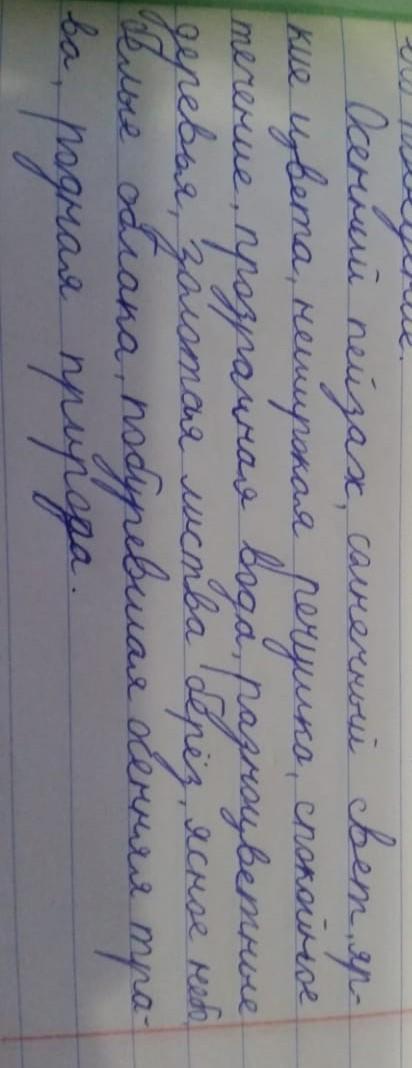 Осенний пейзаж, солнечный свет, яр-
кие цвета, неширокая речушка, спокойное
течение, прозрачная вода, разноцветные
деревья, золотая листва берёз, ясное небо,
белые облака, побуревшая осенняя тра-
ва, родная природа.